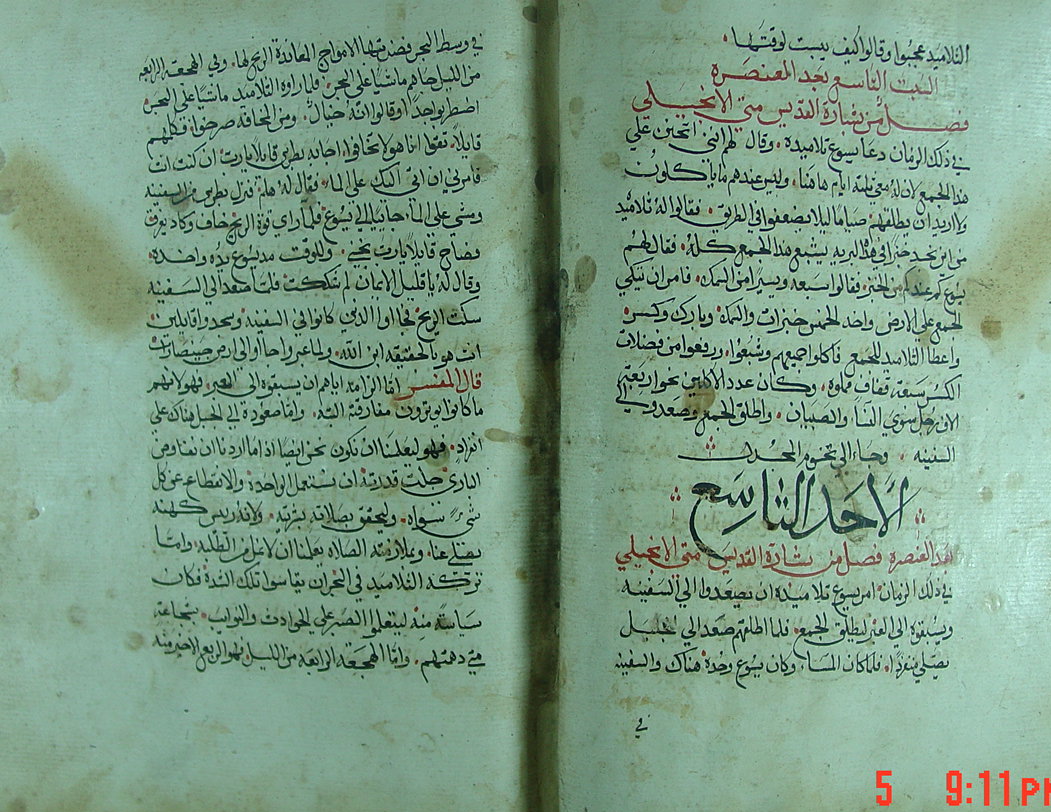 التلاميد عجبوا وقالوا كيف يبست لوقتها
السبت التاسع بعد العنصره
فصل من بشارة القديس متي الانجيلي
في ذلك الزمان دعا يسوع تلاميده وقال لهم انني اتحنن علي
هذا الجمع لان له معي ثلثة ايام هاهنا وليس عندهم ما ياكلون
ولا اريد ان نطلقهم صياما ليلا يضعفوا في الطريق فقالوا له تلاميد
من اين نجد خبزا في هذه البريه يشبع هذا الجمع كله فقال لهم
يسوع كم عندكم من الخبز فقالوا سبعه ويسيرا من السمك فامر ان يتكي
الجمع علي الارض واخد الخمس خبزات والسمك وبارك وكسر
واعطا التلاميد للجمع فاكلوا جميعهم وشبعوا ورفعوا من فضلات
الكسر سبعة قفاف مملوه وكان عدد الاكلين نحو اربعة
الاف رجل سوي النسا والصبيان واطلق الجمع وصعد الي
السفينه وجاء الي تخوم المجدل
الاحد التاسع
بعد العنصره فصل من بشارة القديس متي الانجيلي
في ذلك الزمان امر يسوع تلاميده ان يصعدوا الي السفينه
ويسبقوه الي العبر ليطلق الجمع فلما اطلقهم صعد الي الجبل
يصلي منفردا فلما كان المسا وكان يسوع وحده هناك والسفينه
في
في وسط البحر فضربتها الامواج لمعاندة الريح لها وفي الهجعة الرابعه
من الليل جاهم ماشيا علي البحر فلما راوه التلاميد ماشيا علي البحر
اضطربوا جدا وقالوا انه خيال ومن المخافة صرخوا فكلمهم
قايلا ثقوا انا هو لا تخافوا اجابه بطرس قايلا يارب ان كنت انت
فامرني ان اتي اليك علي الماء فقال له هلم فنزل بطرس من السفينه
ومشي علي الما جاييا الي يسوع فلما راي قوة الريح خاف وكاد يغرق
فصاح قايلا يارب نجيني وللوقت مد يسوع يده واخده
وقال له يا قليل الايمان لم شككت فلما صعد الي السفينه
سكت الريح فجاوا الذين كانوا في السفينه وسجدوا قايلين
انت هو بالحقيقه ابن الله ولما عبروا جاوا الي ارض جنيصارات
قال المفسر اما الزامه اياهم ان يسبقوه الي العبر فهو لانهم
ما كانوا يوثرون مفارقته البته واما صعوده الي الجبل هناك علي
انفراد فهو ليعلمنا ان نكون نحن ايضا اذا ما اردنا ان نفاوض
الباري جلت قدرته ان نستعمل الوحدة والانقطاع عن كل
شيء سواه وليحقق بصلاته بشريته ولانه ريس كهنه
يصلي عنا وبملازمته الصلاه يعلمنا ان لا نمل من الطلبه واما
تركه التلاميد في البحر ان يقاسوا تلك الشدة فكان
سياسة منه ليتعلموا الصبر علي الحوادث والنوايب بشجاعة
متي دهمتهم واما الهجعة الرابعة من الليل فهو الربع الاخير منه
5 9:11 PM